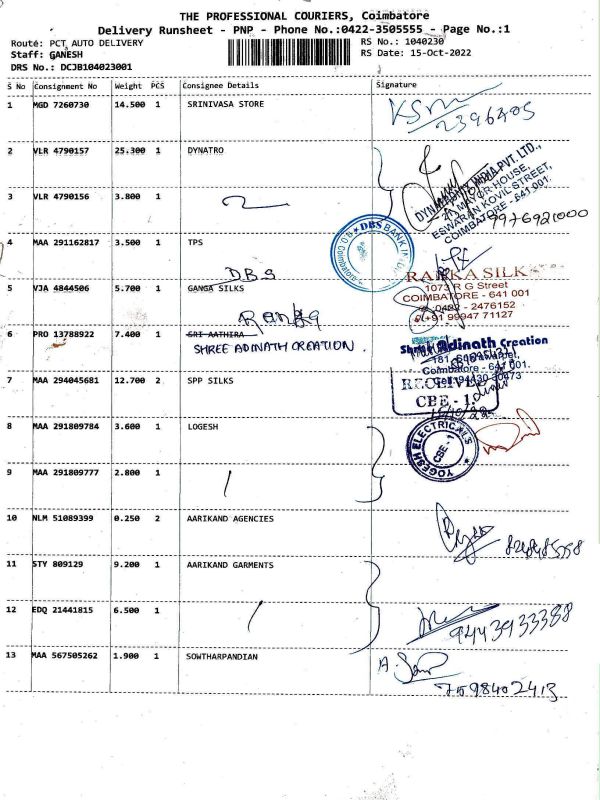 THE PROFESSIONAL COURIERS, Coimbatore
Delivery Runsheet - PNP - Phone No.:0422-3505555 - Page No.:1
Route: PCT AUTO DELIVERY
RS No.: 1040230
Staff: GANESH
RS Date: 15-Oct-2022
DRS No.: DCJB104023001
S No Consignment No Weight PCS Consignee Details Signature
1 MGD 7260730 14.500 1 SRINIVASA STORE
2396405
2 VLR 4790157 25.300 1 DYNATRO
INDIA PVT. LTD.,
MAYOR HOUSE,
ESWARAN KOVIL STREET,
COIMBATORE - 641 001.
9976921000
3 VLR 4790156 3.800 1
DBS BANK
4 MAA 291162817 3.500 1 TPS
DBS
5 VJA 4844506 5.700 1 GANGA SILKS
RANKA SILK
1073 R G Street
COIMBATORE - 641 001
0422 - 2476152
+91 99947 71127
Ranka
6 PRO 13788922 7.400 1 SRI AATHIRA
SHREE ADINATH CREATION.
Shree Adinath Creation
Coimbatore - 641 001.
7 MAA 294045681 12.700 2 SPP SILKS
RECEIVED
CBE - 1.
15/10/22
8 MAA 291809784 3.600 1 LOGESH
YOGESH ELECTRICALS
CBE - 1
9 MAA 291809777 2.800 1
10 NLM 51089399 0.250 2 AARIKAND AGENCIES
11 STY 809129 9.200 1 AARIKAND GARMENTS
12 EDQ 21441815 6.500 1
9443933388
13 MAA 567505262 1.900 1 SOWTHARPANDIAN
7598402413